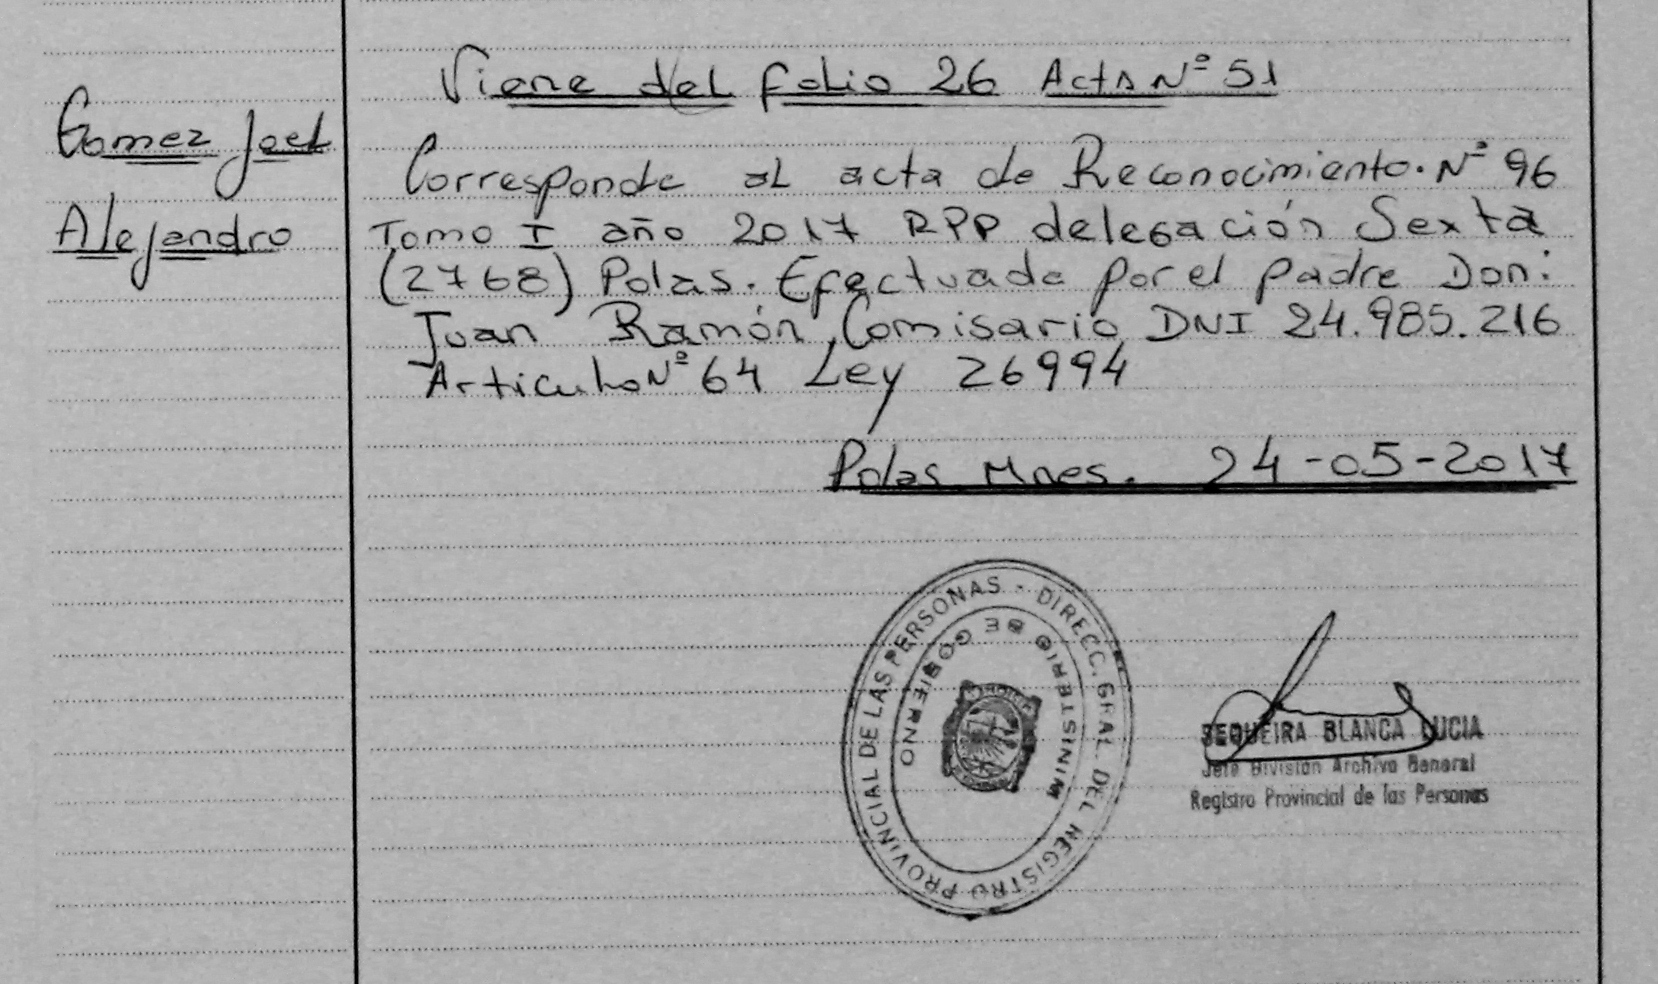 Viene del folio 26 Acta Nº 51
Gomez Joel
Alejandro
Corresponde al acta de Reconocimiento. Nº 96
Tomo I año 2017 RPP delegación Sexta
(2768) Pdas. Efectuada por el padre Don:
Juan Ramón, Comisario DNI 24.985.216
Articulo Nº 64 Ley 26994
Pdas Mnes. 24-05-2017
DIRECC. GRAL. DEL REGISTRO PROVINCIAL DE LAS PERSONAS -
MINISTERIO DE GOBIERNO
SEQUEIRA BLANCA LUCIA
Jefe División Archivo General
Registro Provincial de las Personas